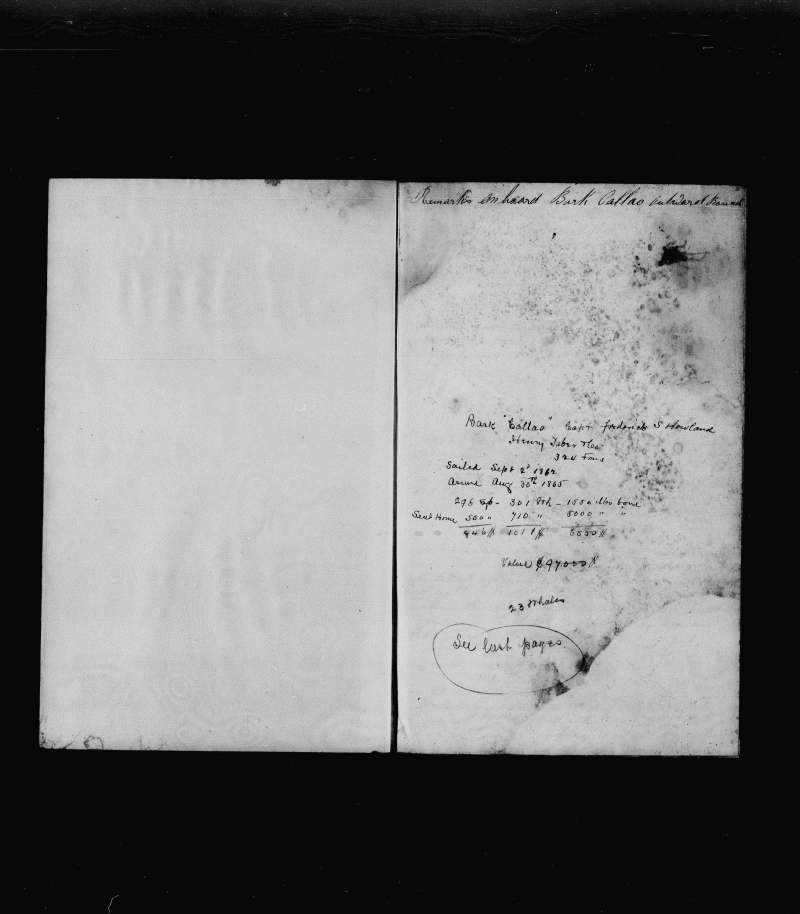 Remarks on board Bark Callao outward Bound
Bark "Callao" Capt Frederick S Howland
Henry Taber & Co
324 Tons
Sailed Sept 2d 1862
Arrived Aug 30th 1865
296 Sp - 301 Wh - 1550 lbs bone
Sent Home 550 " 710 " 5000 " "
846 1011 6550
Value $97.000
23 Whales
See last pages